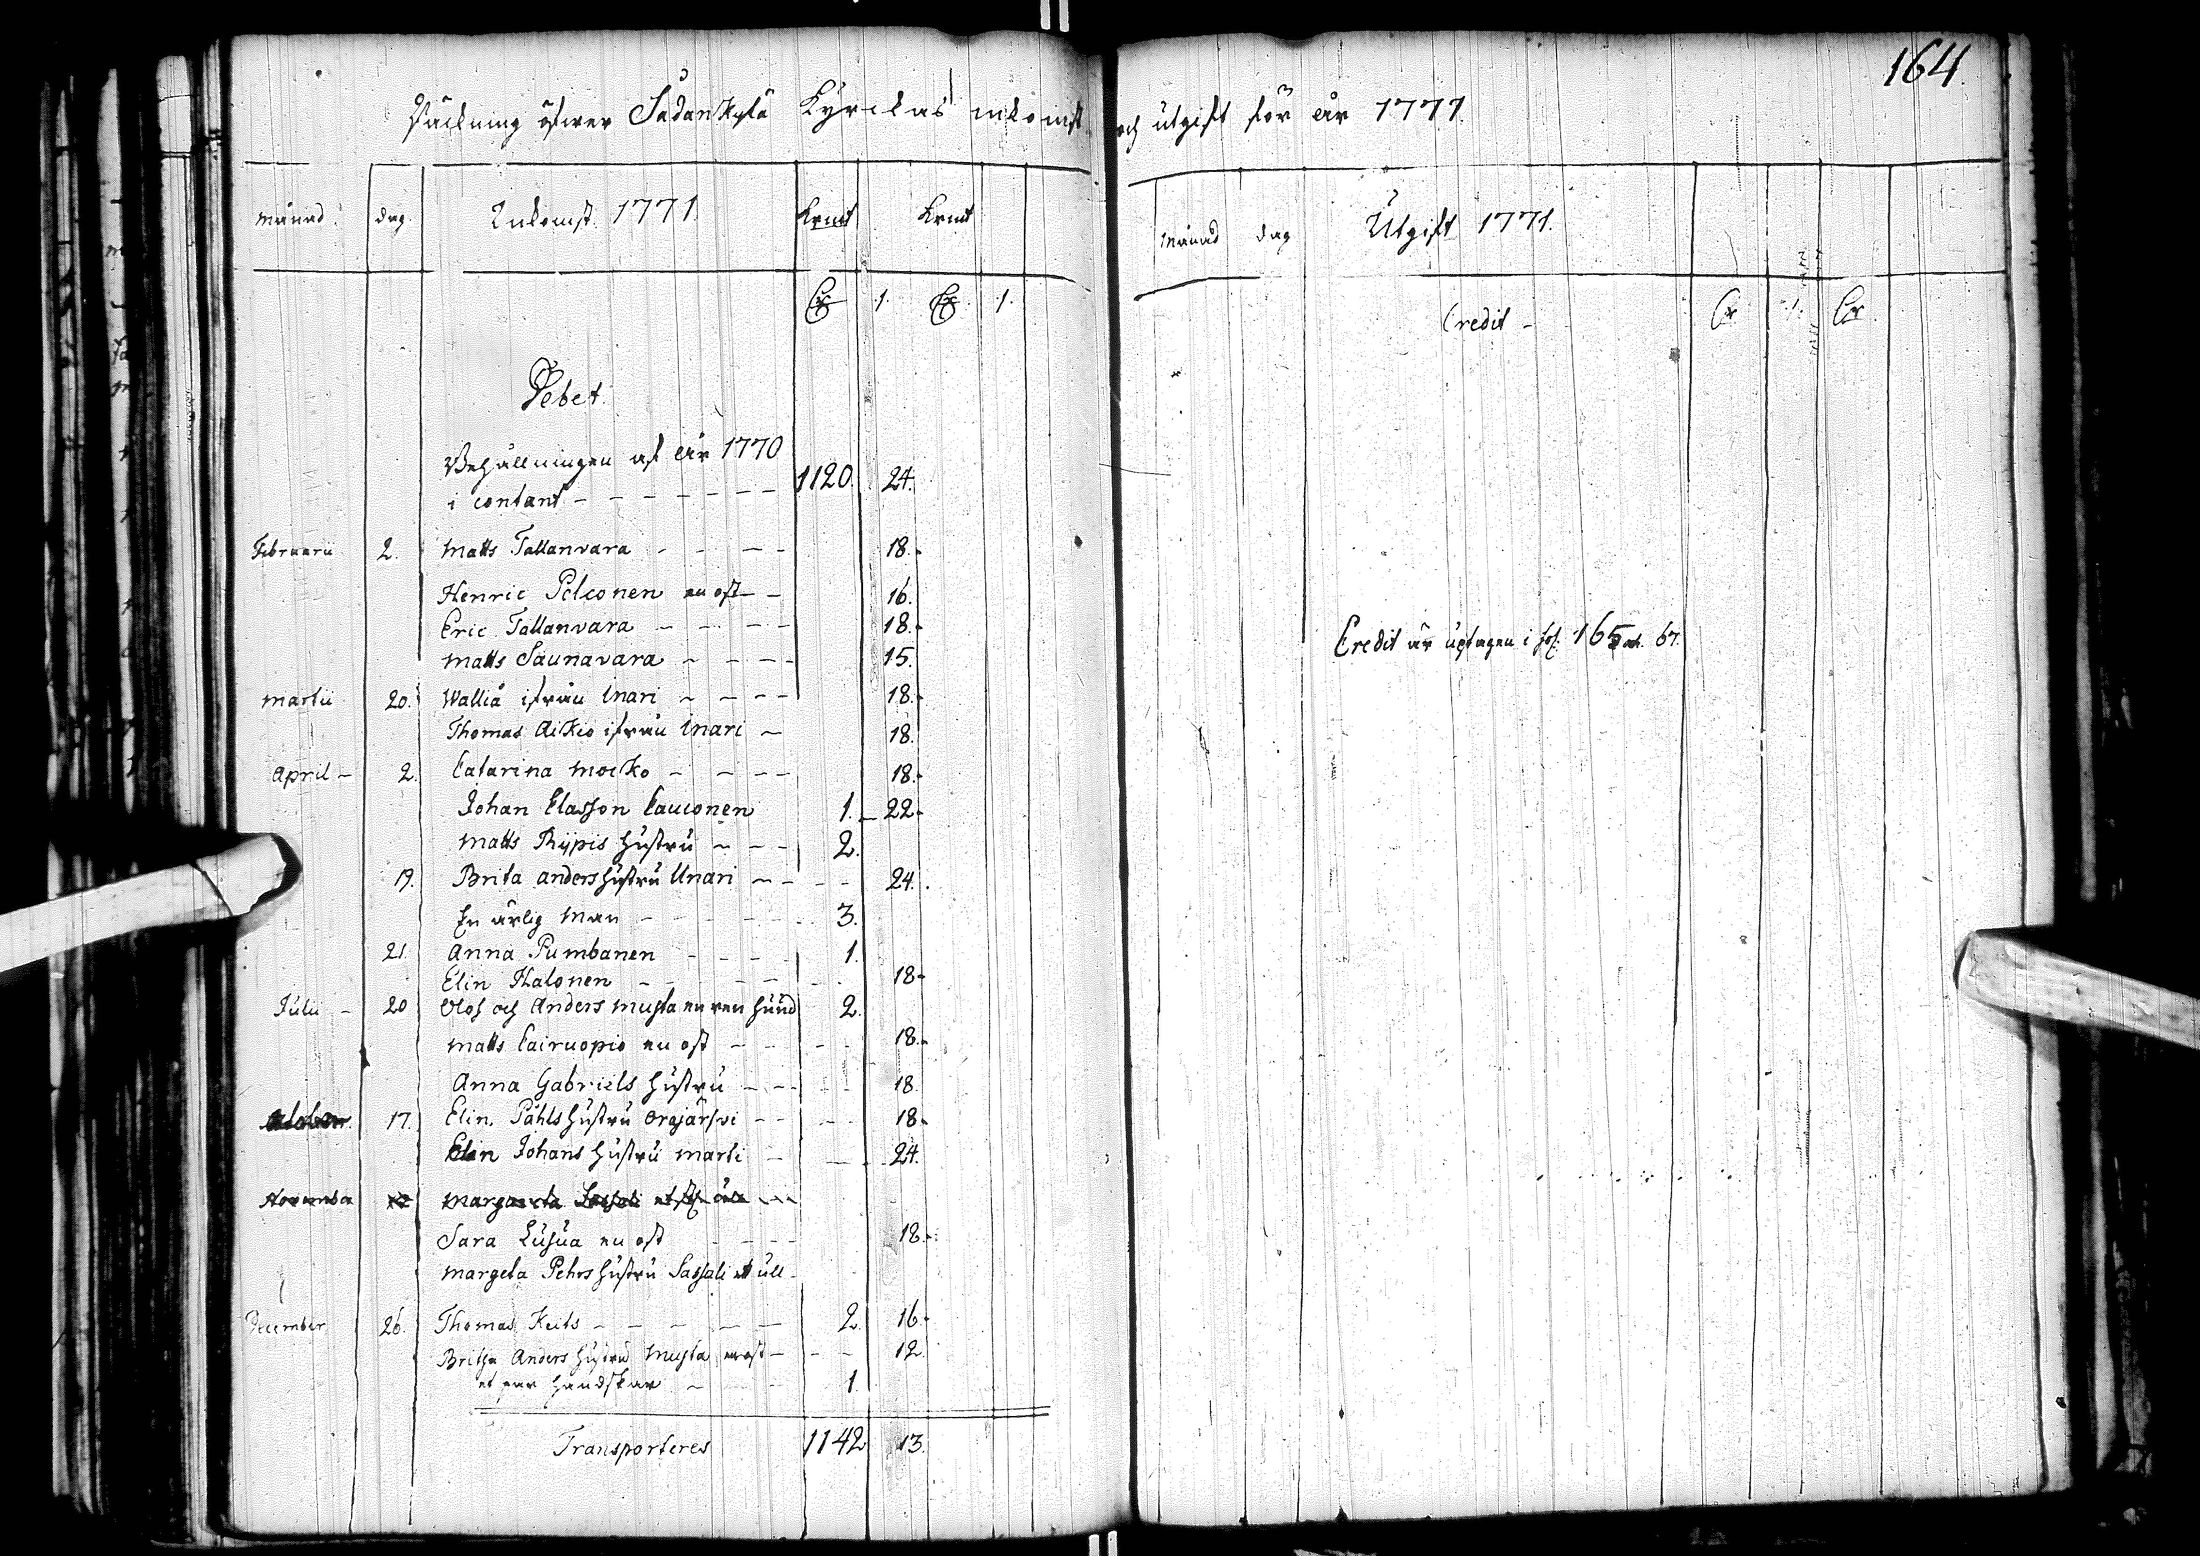 164.
Räckning öfwer Sådankylä Kyrckas inkomst och utgift för år 1771.
månad. dag. Inkomst 1771. Krmt Krmt
1. 1.
Debet.
Behållningen af år 1770
i contant - - - - - - - 1120. 24.
Februarii 2. Matts Tallanvara - - - - 18.
Henric Pelconen en ost - - 16.
Eric Tallanvara - - - - 18.
Matts Saunavara - - - - 15.
Martii 20. Wallia ifrån Inari - - - - 18.
Thomas Aikio ifrån Inari - 18.
April - 2. Catarina Mocko - - - - 18.
Johan Classon Cauconen 1. 22.
Matts Rijpis hustru - - - 2.
19. Brita Anders hustru Unari - - - - 24.
En ärlig Man - - - - - - 3.
21. Anna Pumbanen - - - - 1.
Elin Halonen - - - - - - 18.
Julii - 20 Olof och Anders Musta en ren hund 2.
Matts Cairuopio en ost - - - - 18.
Anna Gabriels hustru - - - - - 18.
17. Elin Påhls hustru Orajärfvi - - - - 18.
Elin Johans hustru Marti - - - 24.
Sara Lusua en ost - - - - 18.
Margeta Pehrs hustru Sassali et ull - -
December 26. Thomas Keits - - - - - - 2. 16.
Britha Anders hustru Musta en ost - - - 12.
et par handskar - - - - 1.
Transporteres 1142 13.
Månad dag Utgift 1771.
Credit -
Credit är uptagen i fol. 165 67.